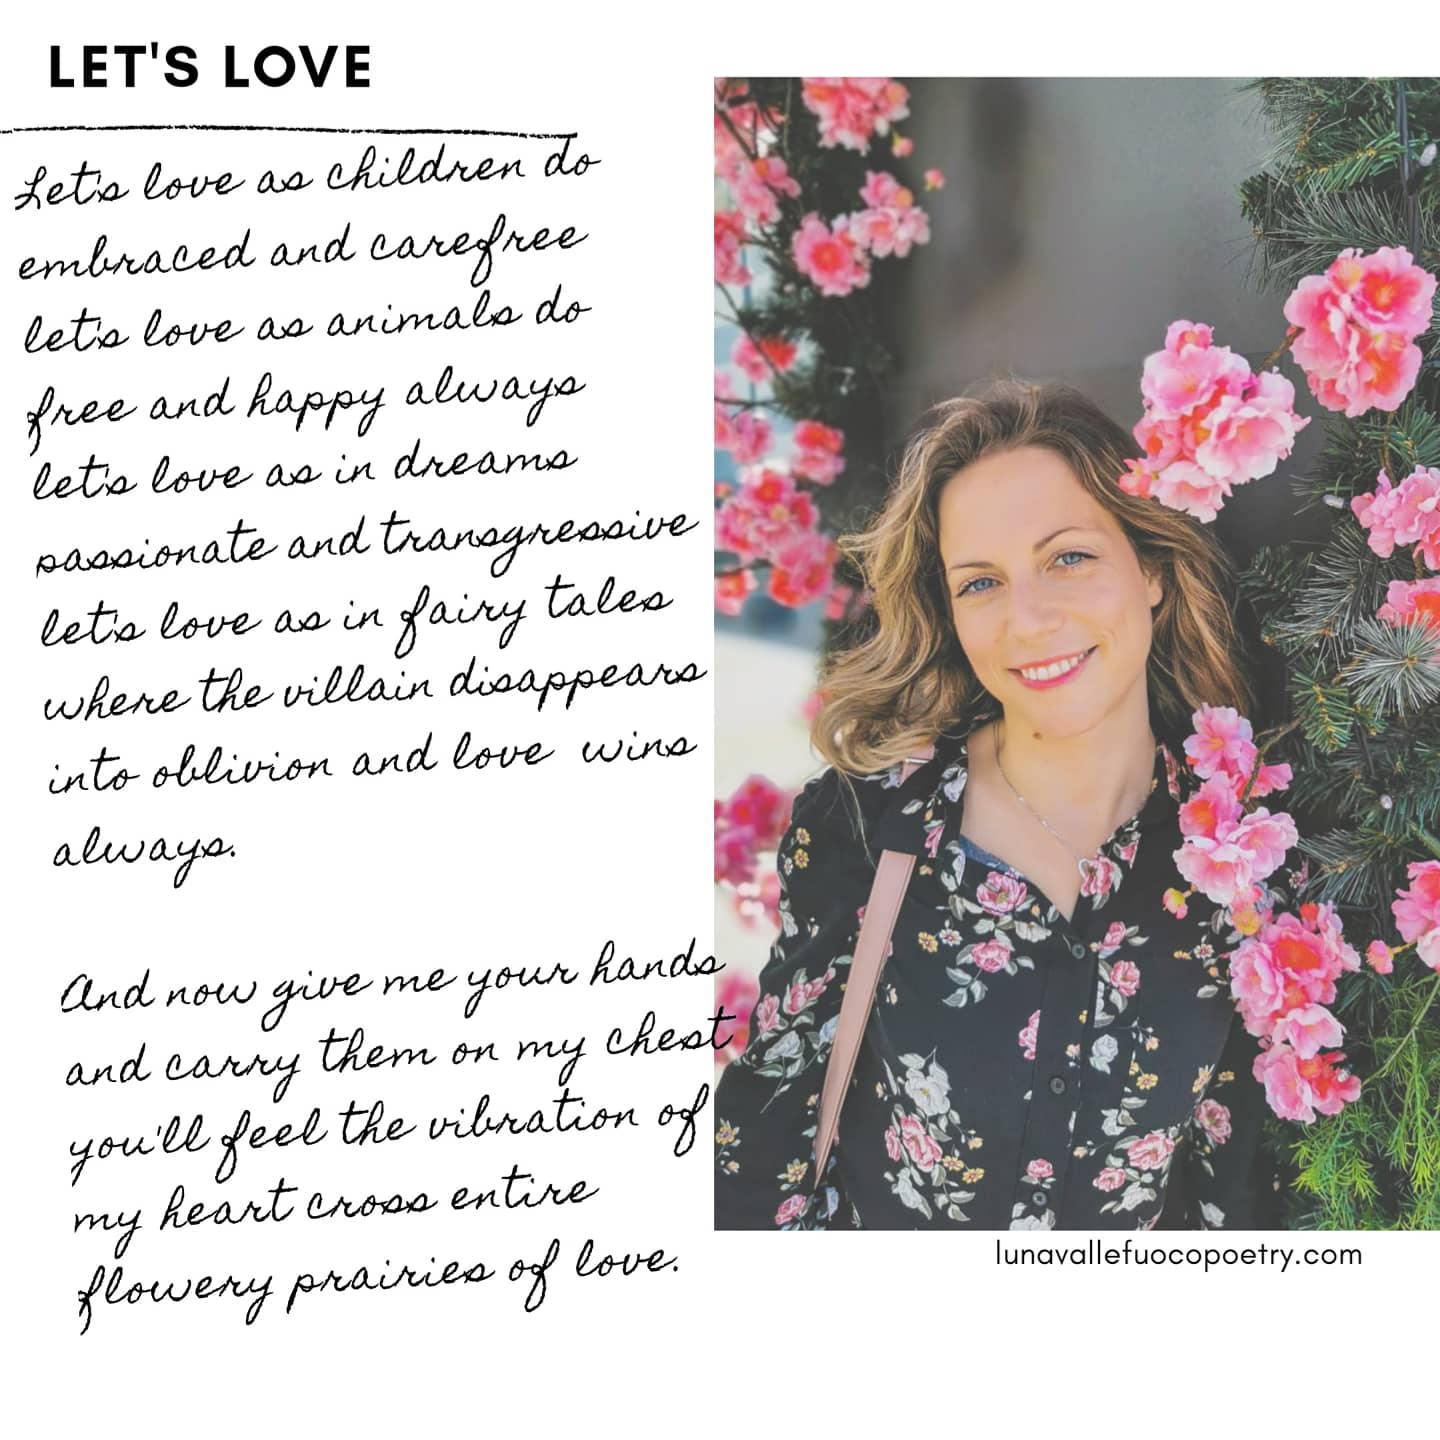 LET'S LOVE
Let's love as children do
embraced and carefree
let's love as animals do
free and happy always
let's love as in dreams
passionate and transgressive
let's love as in fairy tales
where the villain disappears
into oblivion and love wins
always.
And now give me your hands
and carry them on my chest
you'll feel the vibration of
my heart cross entire
flowery prairies of love.
lunavallefuocopoetry.com